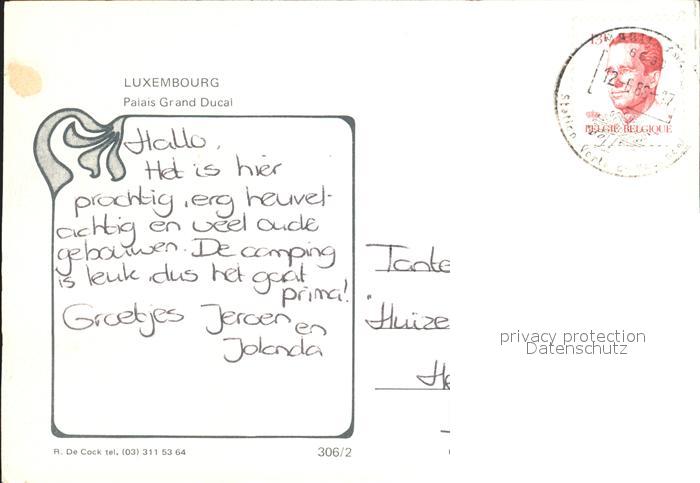 LUXEMBOURG
Palais Grand Ducal
Hallo,
Het is hier
prachtig, erg heuvel-
achtig en veel oude
gebouwen. De camping
is leuk, dus het gaat
prima!
Groetjes Jeroen
en
Jolanda
R. De Cock tel. (03) 311 53 64
306/2
Tante
Huize
privacy protection
Datenschutz
13F
BELGIË-BELGIQUE